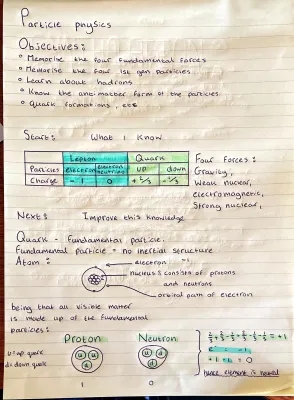 Particle physics
Objectives:
° Memorise the four fundamental forces
° Memorise the four 1st gen particles
° Learn about hadrons
° Know the antimatter form of the particles
° Quark formations, etc
Start: What I Know
Lepton Quark
Particles electron electron neutrino up down
Charge -1 0 +2/3 -1/3
Four Forces:
Gravity,
Weak nuclear,
electromagnetic,
Strong nuclear,
Next: Improve this knowledge
Quark - Fundamental particle.
Fundamental particle = no inertial structure
Atom:
electron -1
nucleus : consists of protons
and neutrons
orbital path of electron
being that all visible matter
is made up of the fundamental
particles:
Proton Neutron
u: up quark
d: down quark
u u d
u d d
1 0
2/3+2/3-1/3+2/3-1/3-1/3=+1
e⁻ = -1
+1 -1 = 0
hence element is neutral